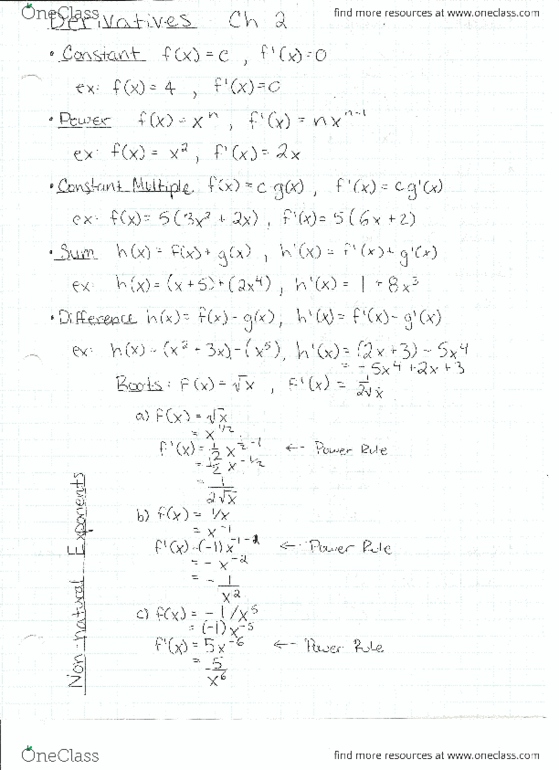 OneClass
find more resources at www.oneclass.com
Derivatives Ch 2
• Constant f(x) = c , f'(x) = 0
ex: f(x) = 4 , f'(x) = 0
• Power f(x) = xⁿ , f'(x) = nxⁿ⁻¹
ex: f(x) = x² , f'(x) = 2x
• Constant Multiple f(x) = c g(x) , f'(x) = c g'(x)
ex: f(x) = 5(3x² + 2x) , f'(x) = 5(6x + 2)
• Sum h(x) = f(x) + g(x) , h'(x) = f'(x) + g'(x)
ex: h(x) = (x + 5) + (2x⁴) , h'(x) = 1 + 8x³
• Difference h(x) = f(x) - g(x) , h'(x) = f'(x) - g'(x)
ex: h(x) = (x² + 3x) - (x⁵) , h'(x) = (2x + 3) - 5x⁴
= -5x⁴ + 2x + 3
Roots: f(x) = √x , f'(x) = 1/2√x
Non-natural Exponents
a) f(x) = √x
= x^1/2
f'(x) = 1/2 x^1/2 - 1 ← Power Rule
= 1/2 x^-1/2
= 1/2√x
b) f(x) = 1/x
= x⁻¹
f'(x) = (-1)x⁻¹⁻¹ ← Power Rule
= -x⁻²
= - 1/x²
c) f(x) = -1/x⁵
= (-1)x⁻⁵
f'(x) = 5x⁻⁶ ← Power Rule
= 5/x⁶
OneClass
find more resources at www.oneclass.com